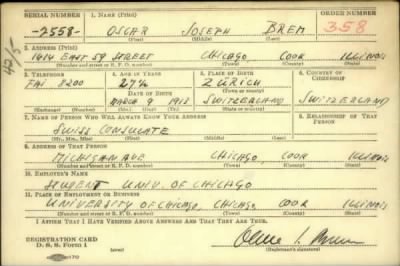 SERIAL NUMBER 1. NAME (Print) ORDER NUMBER
-2558- OSCAR JOSEPH BREM 358
(First) (Middle) (Last)
2. ADDRESS (Print)
1414 EAST 59 STREET CHICAGO COOK ILLINOIS
(Number and street or R. F. D. number) (Town) (County) (State)
3. TELEPHONE 4. AGE IN YEARS 5. PLACE OF BIRTH 6. COUNTRY OF CITIZENSHIP
FAI 8200 27 ZÜRICH
DATE OF BIRTH (Town or county)
MARCH 9 1913 SWITZERLAND SWITZERLAND
(Exchange) (No.) (Mo.) (Day) (Yr.) (State or country)
7. NAME OF PERSON WHO WILL ALWAYS KNOW YOUR ADDRESS 8. RELATIONSHIP OF THAT PERSON
SWISS CONSULATE
(Mr., Mrs., Miss) (First) (Middle) (Last)
9. ADDRESS OF THAT PERSON
MICHIGAN AVE CHICAGO COOK ILLINOIS
(Number and street or R. F. D. number) (Town) (County) (State)
10. EMPLOYER'S NAME
STUDENT UNIV. OF CHICAGO
11. PLACE OF EMPLOYMENT OR BUSINESS
UNIVERSITY OF CHICAGO, CHICAGO, COOK ILLINOIS
(Number and street or R. F. D. number) (Town) (County) (State)
I AFFIRM THAT I HAVE VERIFIED ABOVE ANSWERS AND THAT THEY ARE TRUE.
REGISTRATION CARD
D. S. S. Form 1 (over) (Registrant's signature)